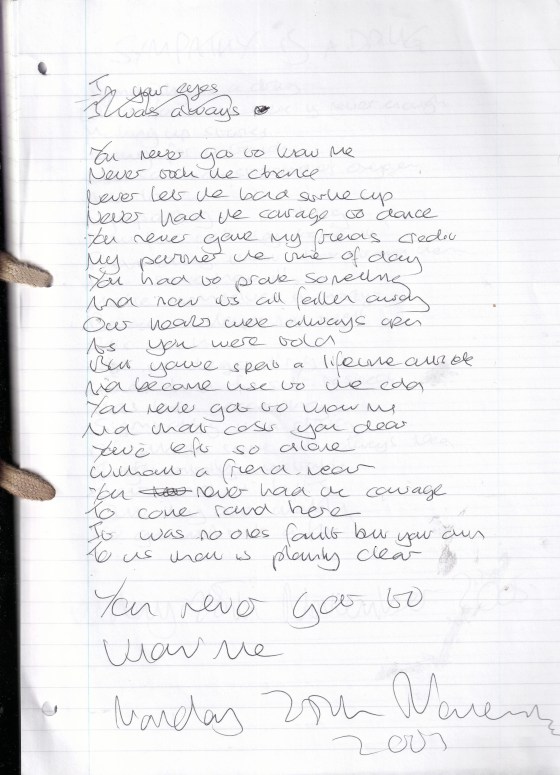 In your eyes
I was always
You never got to know me
Never took the chance
Never let the band strike up
Never had the courage to dance
You never gave my friends credit
My partner the time of day
You had to prove something
And now its all fallen away
Our hearts were always open
As you were told
But you've spent a lifetime outside
And became use to the cold
You never got to know me
And that cost you dear
You're left so alone
Without a friend near
You never had the courage
To come round here
It was no ones fault but your own
To us that is plainly clear
You never got to
know me
Monday 20th